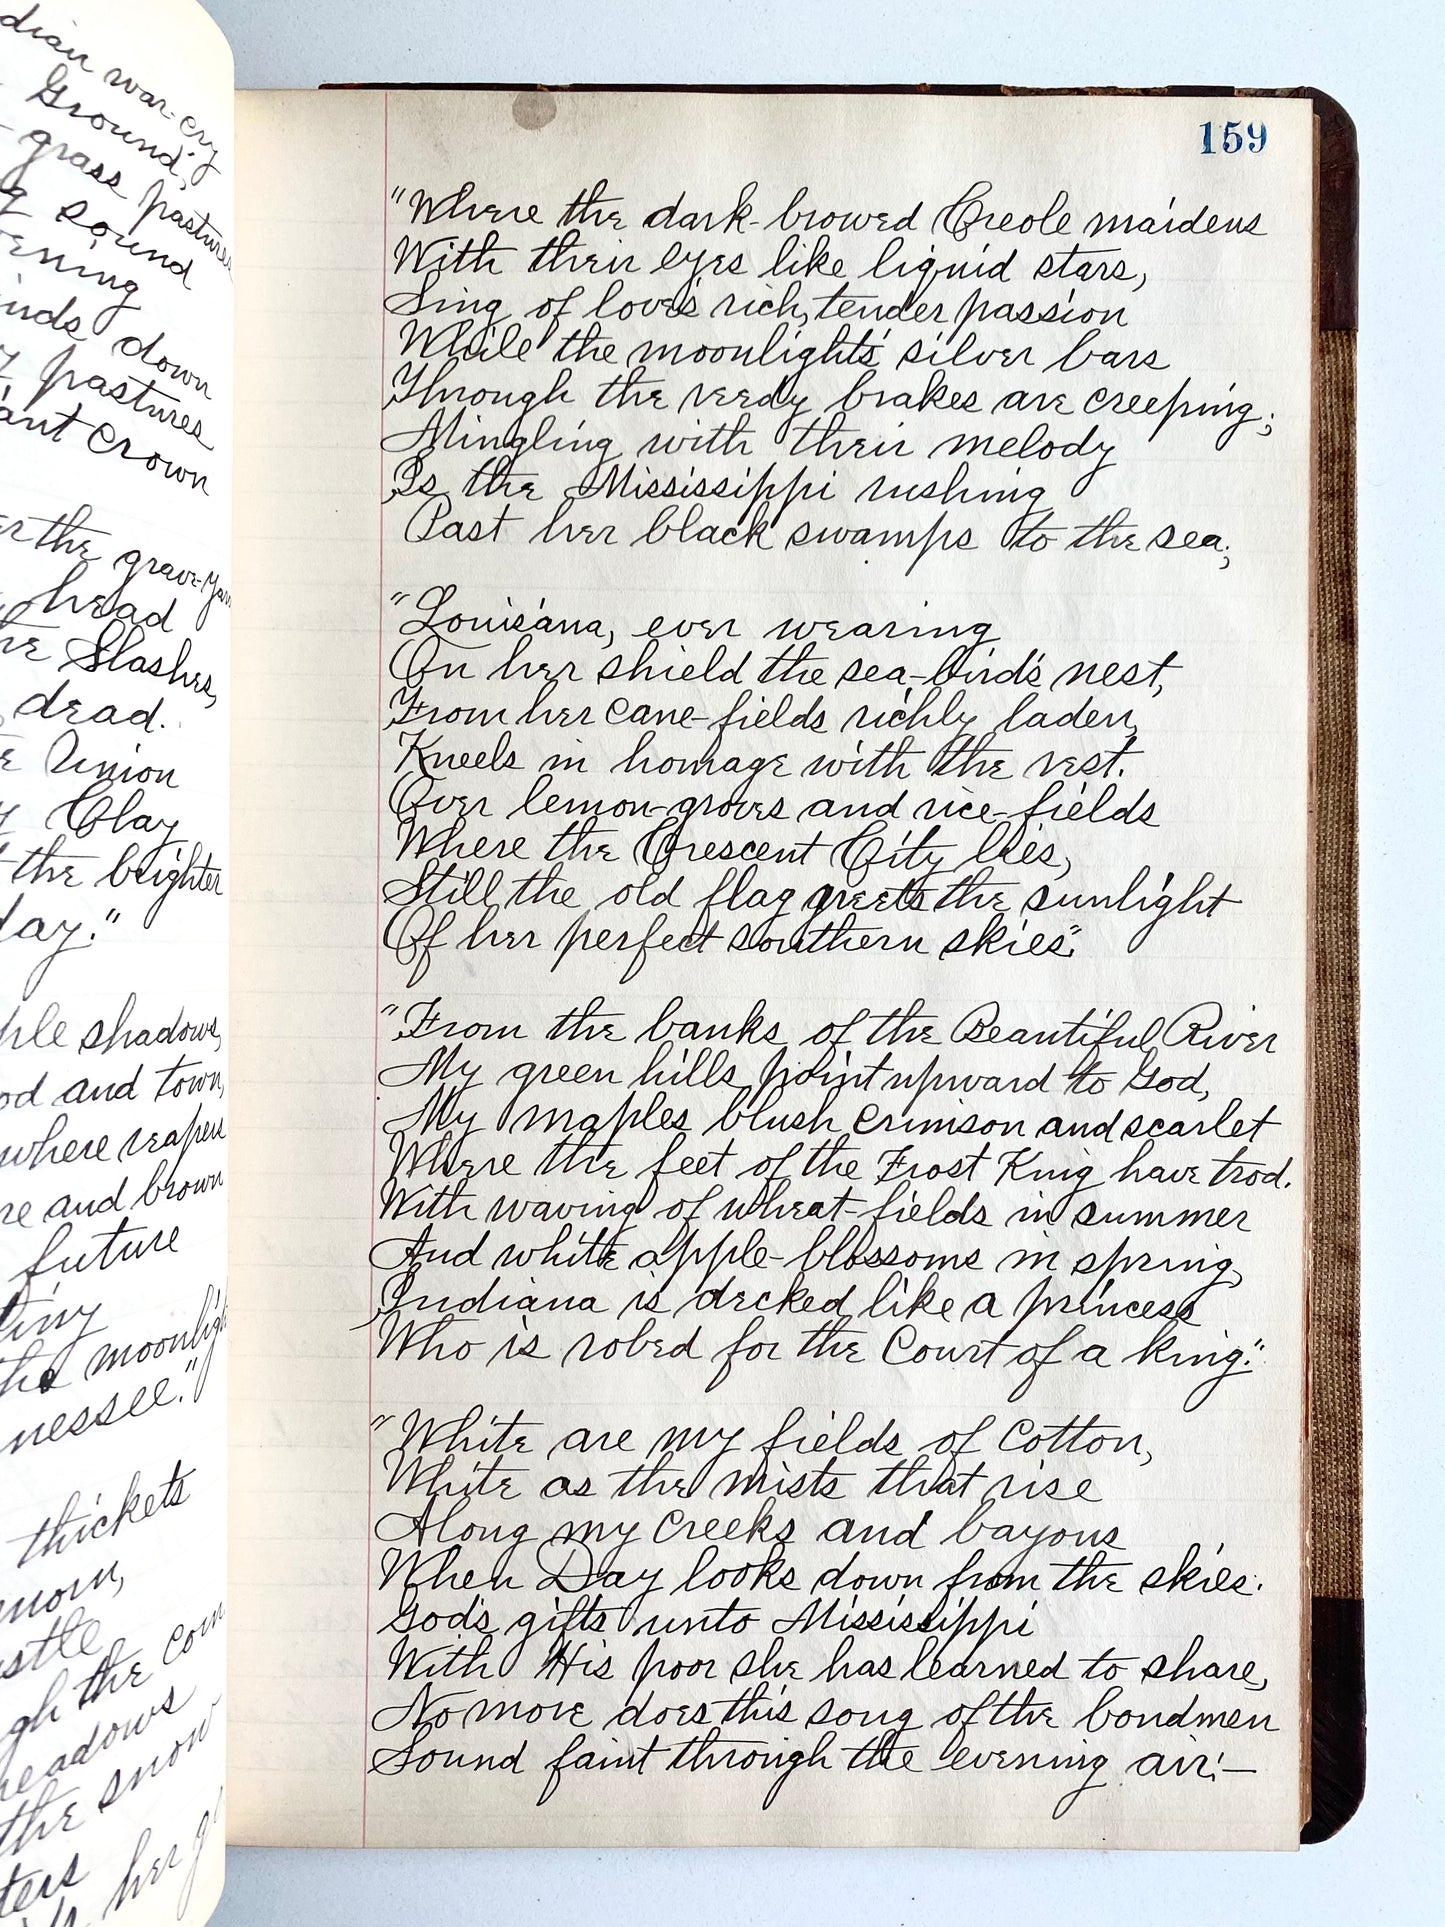 dian war-cry
Ground;
grass pastures
sound
down
pastures
crown
the grave-yard
head
Slashes,
dead.
Union
Clay
the brighter
day."
shadows,
and town,
where reapers
and brown
future
moonlight
thickets
morn,
the snow
her
159
"Where the dark-browed Creole maidens
With their eyes like liquid stars,
Sing of love's rich, tender passion
While the moonlights' silver bars
Through the reedy brakes are creeping;
Mingling with their melody
Is the Mississippi rushing
Past her black swamps to the sea;
"Louisiana, ever wearing
On her shield the sea-bird's nest,
From her cane-fields richly laden,
Kneels in homage with the rest.
Over lemon-groves and rice-fields
Where the Crescent City lies,
Still the old flag greets the sunlight
Of her perfect southern skies."
"From the banks of the Beautiful River
My green hills point upward to God,
My maples blush crimson and scarlet
Where the feet of the Frost King have trod.
With waving of wheat-fields in summer
And white apple-blossoms in spring,
Indiana is decked like a princess
Who is robed for the Court of a king."
"White are my fields of Cotton,
White as the mists that rise
Along my Creeks and bayous
When Day looks down from the skies.
God's gifts unto Mississippi
With His poor she has learned to share,
No more does this song of the bondmen
Sound faint through the evening air;—